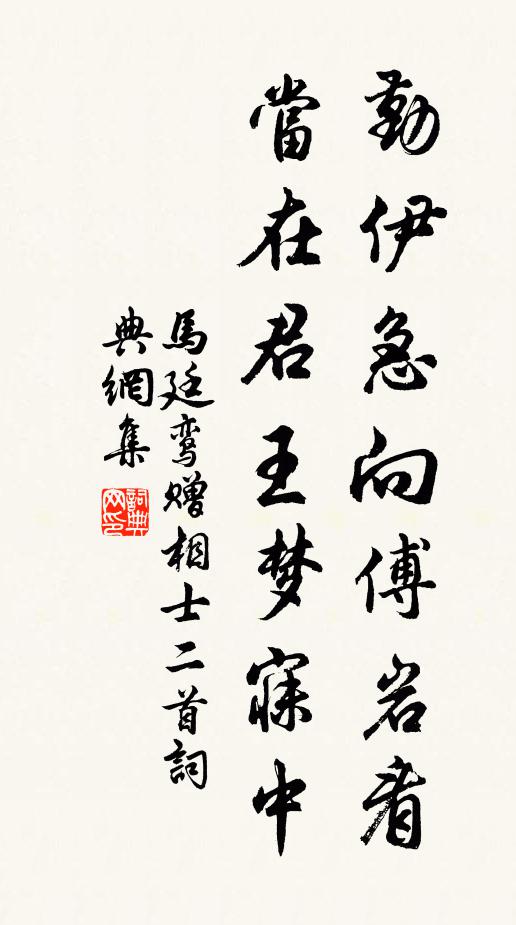 勤伊急向傅岩看
當在君王梦寐中
馬廷鸾赠相士二首詞
典網集
詞典
网印